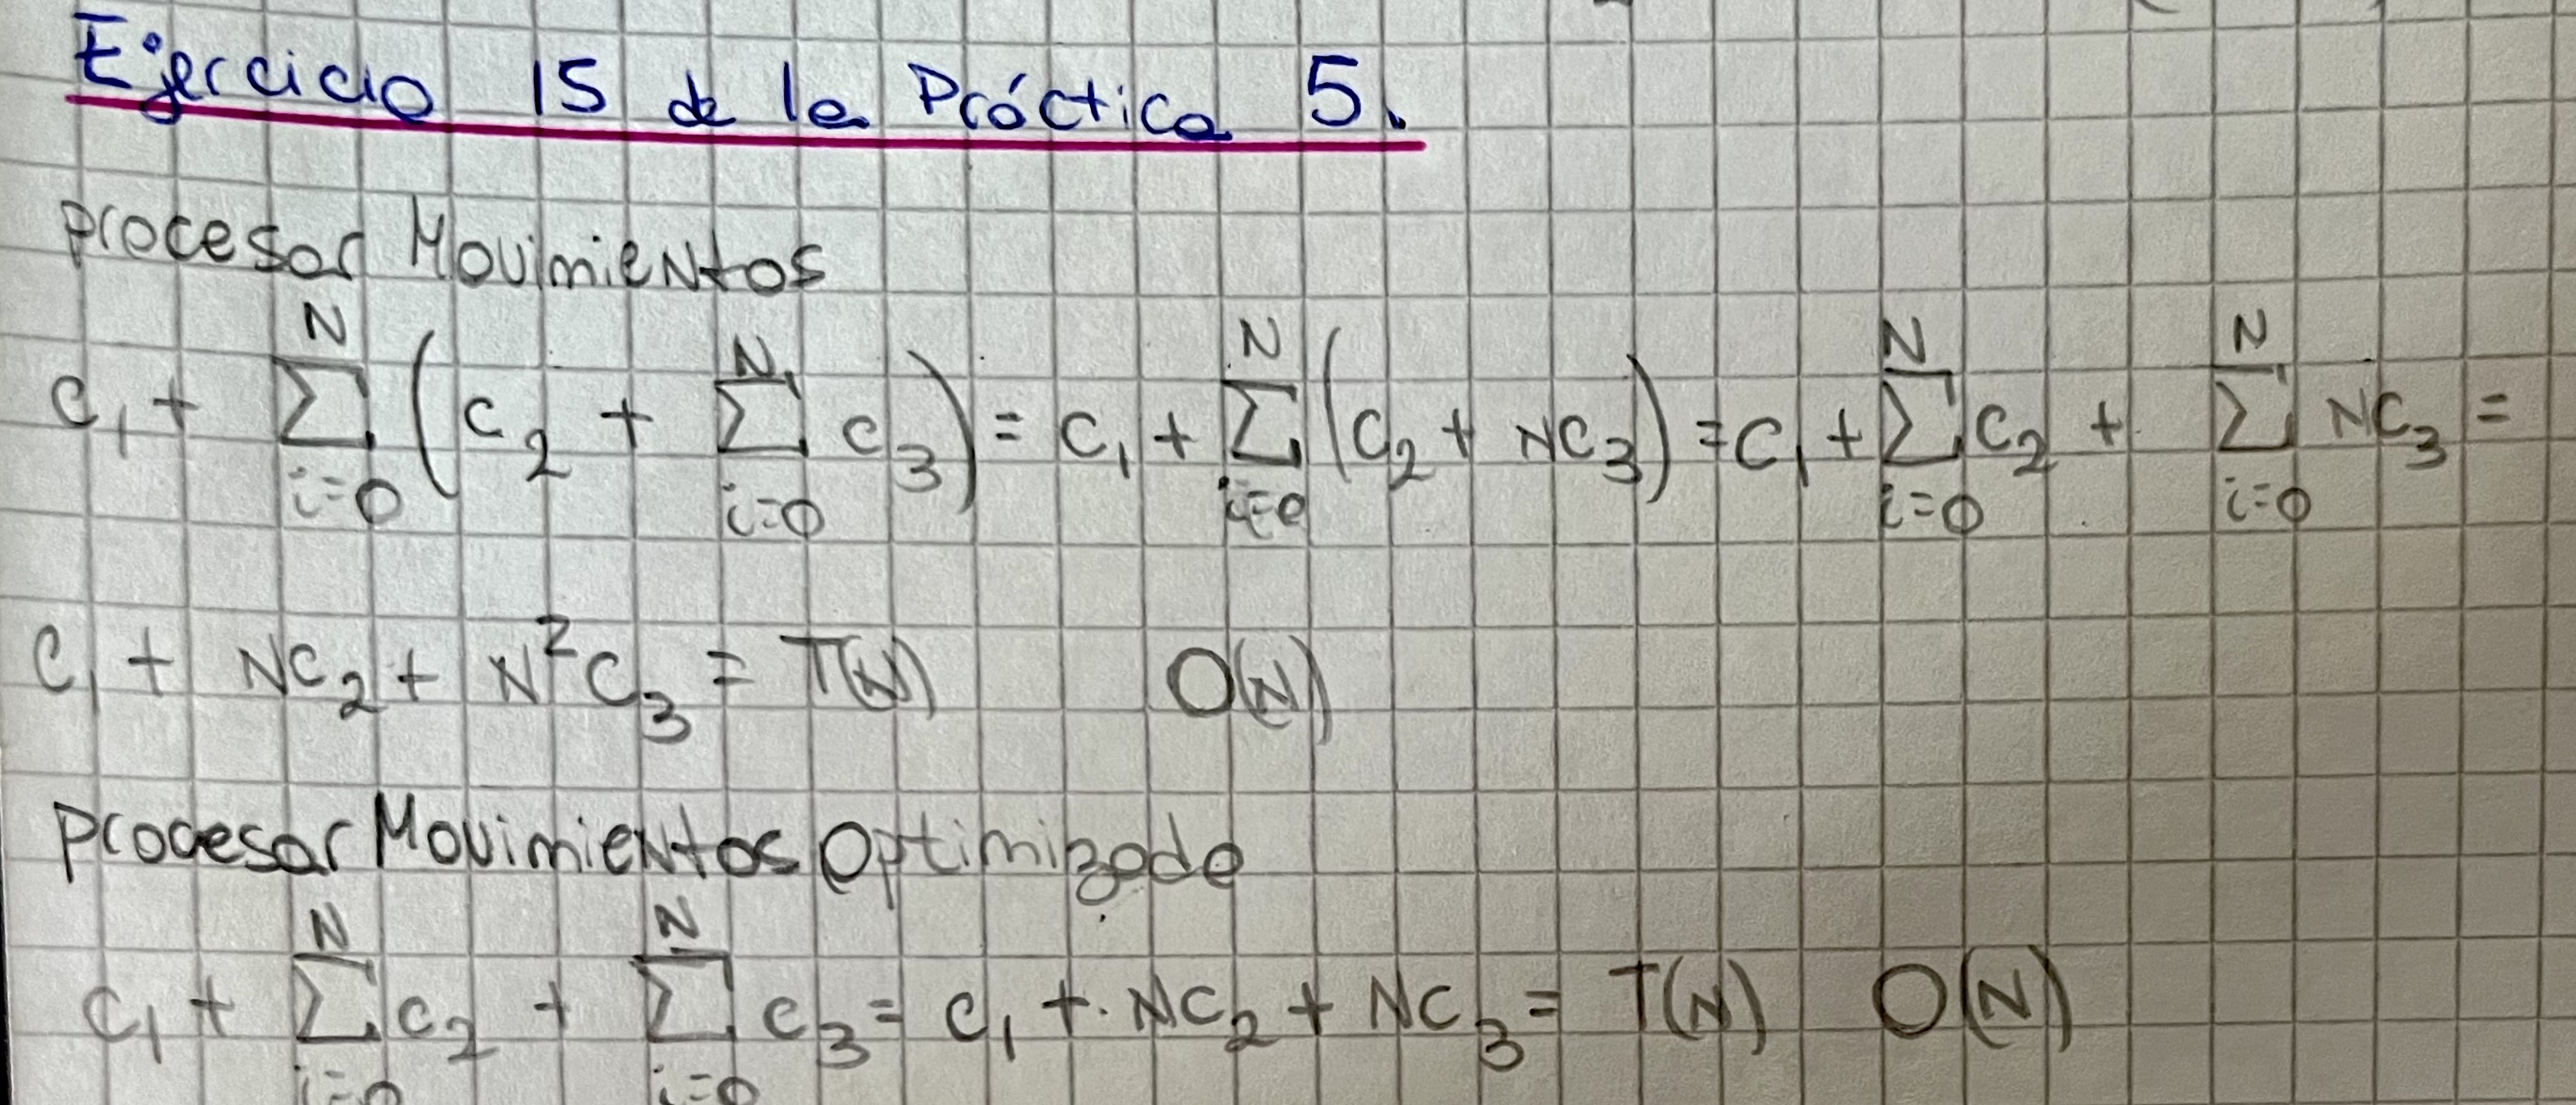 Ejercicio 15 de la Práctica 5.
procesar Movimientos
c₁ + ∑_{i=0}^{N} (c₂ + ∑_{i=0}^{N} c₃) = c₁ + ∑_{i=0}^{N} (c₂ + Nc₃) = c₁ + ∑_{i=0}^{N} c₂ + ∑_{i=0}^{N} Nc₃ =
c₁ + Nc₂ + N²c₃ = T(N) O(N)
procesar Movimientos Optimizado
c₁ + ∑_{i=0}^{N} c₂ + ∑_{i=0}^{N} c₃ = c₁ + Nc₂ + Nc₃ = T(N) O(N)